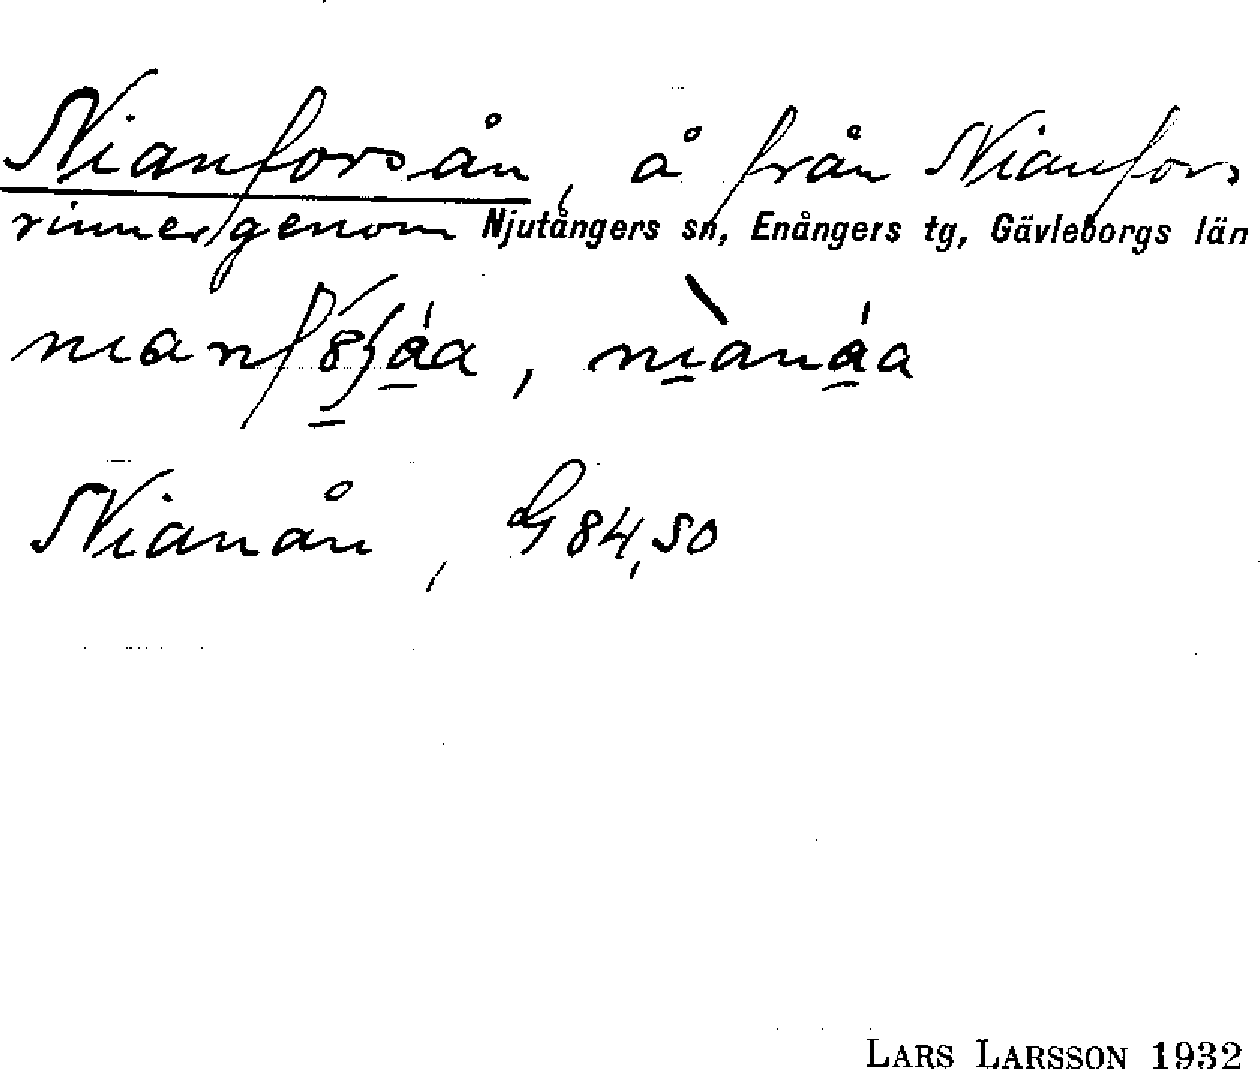 Nianforsån, å från Nianfors
rinner genom Njutångers sn, Enångers tg, Gävleborgs län
Nianån, G 84, 50
LARS LARSSON 1932